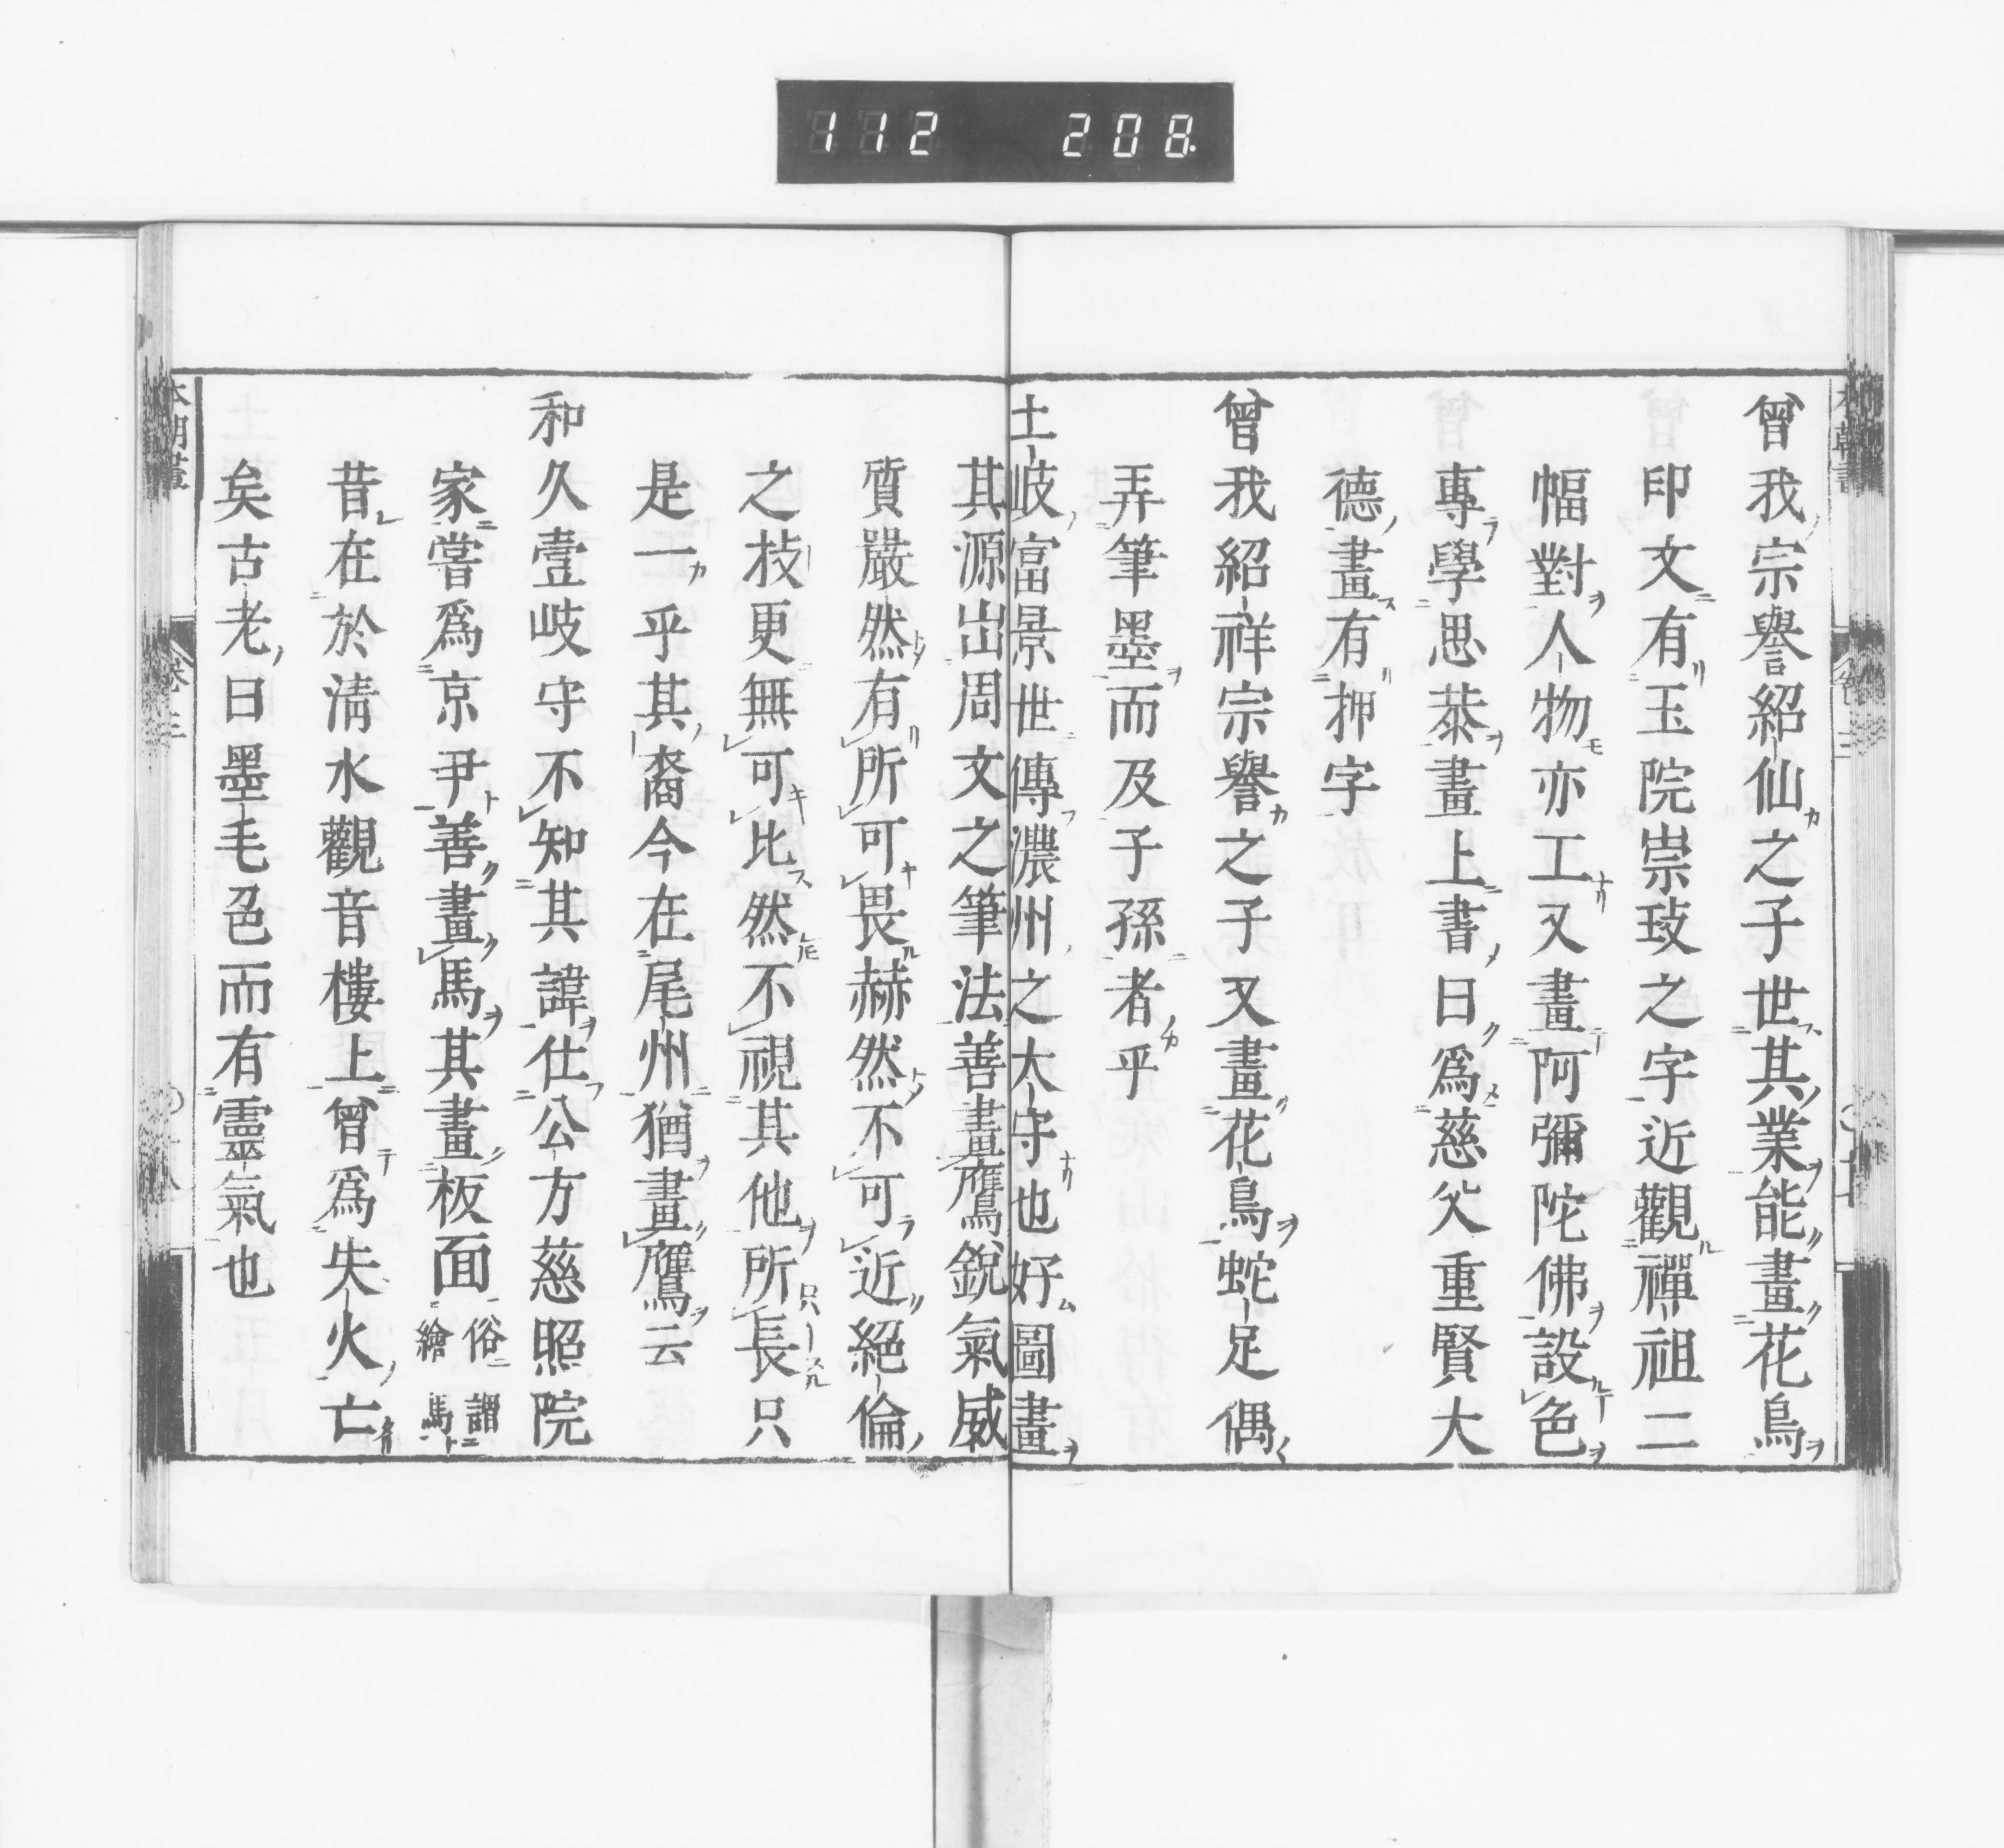 112 208
曾我宗譽紹仙之子世其業能畫花鳥
印文有玉院崇玫之字近觀禪祖二
幅對人物亦工又畫阿彌陀佛設色
專學思恭畫上書曰爲慈父重賢大
德畫有押字
曾我紹祥宗譽之子又畫花鳥蛇足偶
弄筆墨而及子孫者乎
土岐富景世傳濃州之大守也好圖畫
其源出周文之筆法善畫鷹銳氣威
質嚴然有所可畏赫然不可近絕倫
之技更無可比然不視其他所長只
是一乎其裔今在尾州猶畫鷹云
和久壹岐守不知其諱仕公方慈照院
家嘗爲京尹善畫馬其畫板面俗謂繪馬
昔在於淸水觀音樓上曾爲失火亡
矣古老曰墨毛色而有靈氣也